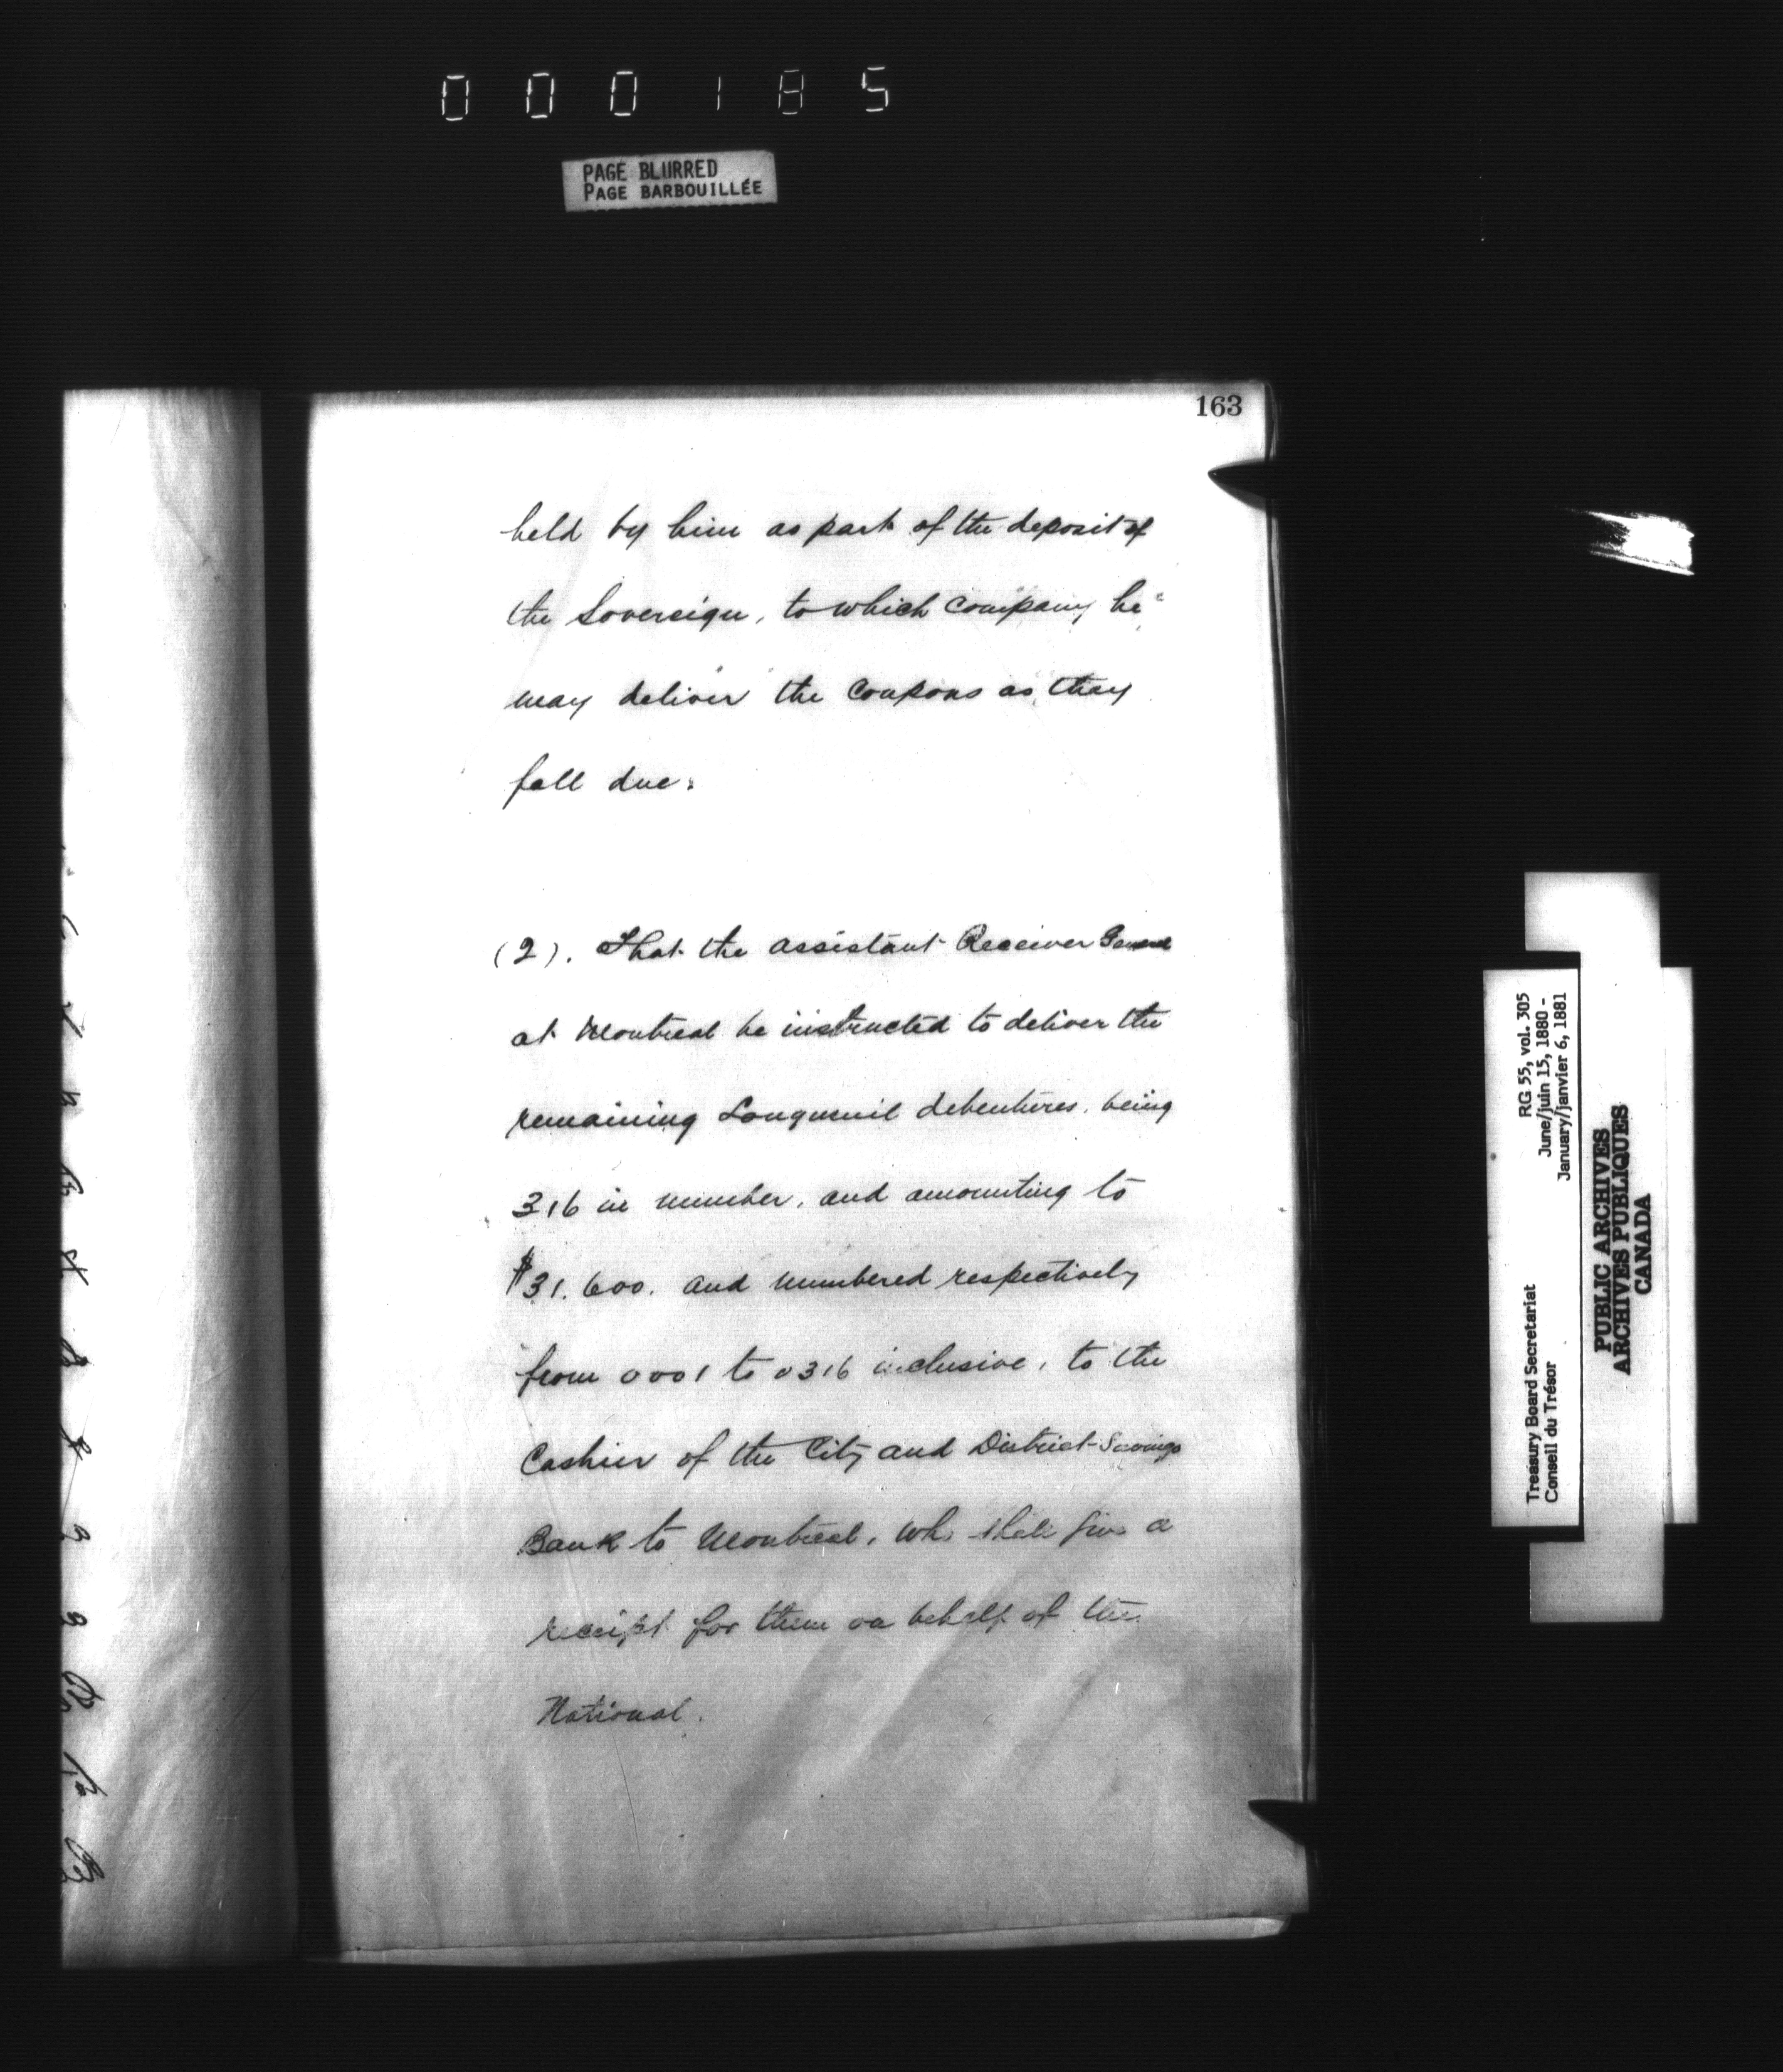 000185
PAGE BLURRED
PAGE BARBOUILLÉE
163
held by him as part of the deposit of
the Sovereign, to which Company he
may deliver the Coupons as they
fall due.
(2). That the Assistant Receiver General
at Montreal be instructed to deliver the
remaining Longueuil debentures, being
316 in number, and amounting to
$31.600. and numbered respectively
from 0001 to 0316 inclusive, to the
Cashier of the City and District Savings
Bank to Montreal, who shall give a
receipt for them on behalf of the
National.
RG 55, vol. 305
June/juin 15, 1880 -
January/janvier 6, 1881
Treasury Board Secretariat
Conseil du Trésor
PUBLIC ARCHIVES
ARCHIVES PUBLIQUES
CANADA